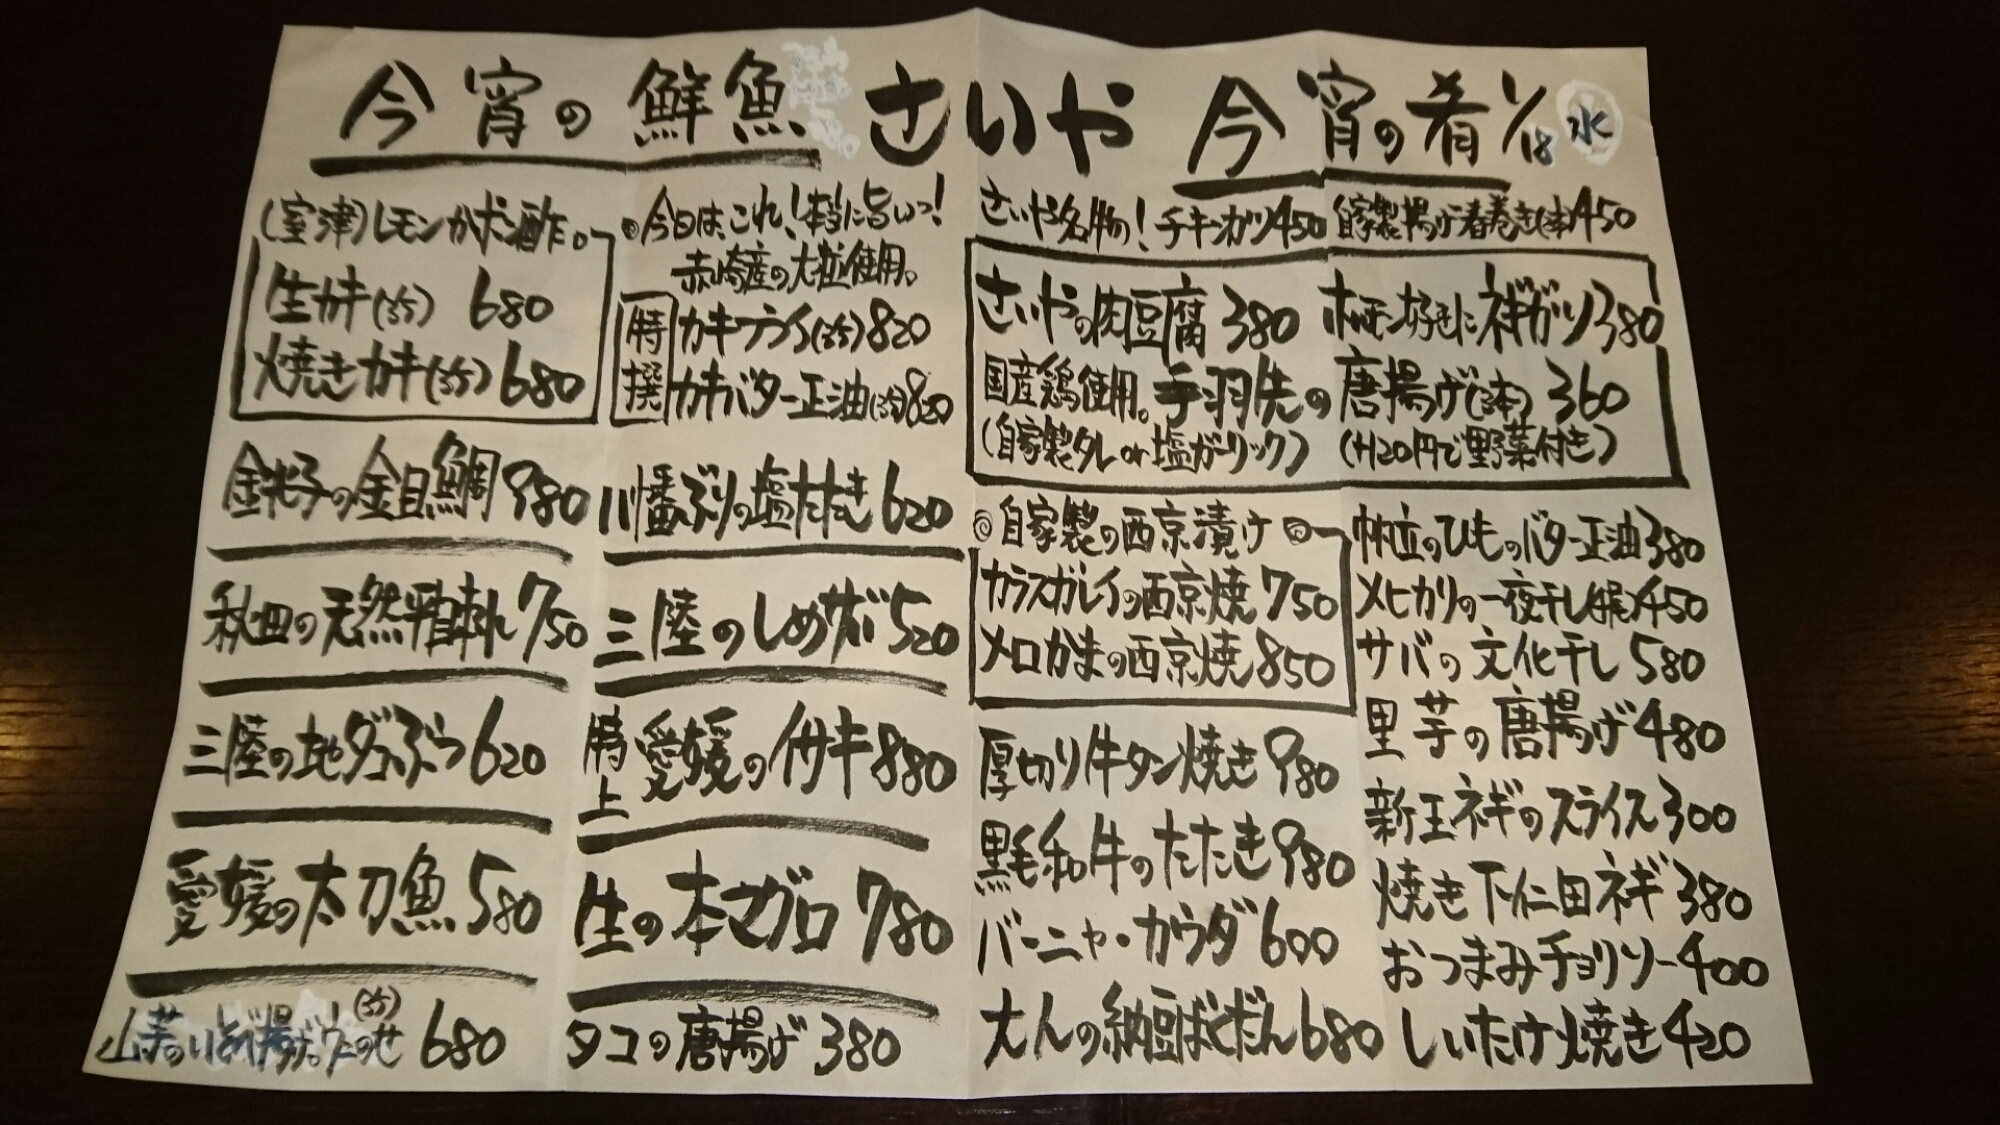 今宵の鮮魚
さいや
今宵の肴 1/18 水
(室津)レモンかポン酢。
生カキ(3ケ) 680
焼きカキ(3ケ) 680
金洸子の金目鯛 980
秋田の天然平目刺し 750
三陸の地ダコぶつ 620
愛媛の太刀魚 580
山芋のいそべ揚げ。ウニのせ(3ケ) 680
◎今日は、これ!本当に旨いっ!
赤崎産の大粒使用。
特撰
カキフライ(3ケ) 820
カキバター正油(3ケ) 820
川幡ぶりの塩たたき 620
三陸のしめサバ 520
特上 愛媛のイサキ 880
生の本マグロ 780
タコの唐揚げ 380
さいや名物! チキンカツ 450
自家製揚げ春巻き(2本) 450
さいやの肉豆腐 380
ホルモン好きにネギガツ 380
国産鶏使用。手羽先の唐揚げ(3本) 360
(自家製タレor塩ガーリック) (+120円で野菜付き)
◎自家製の西京漬け◎
カラスガレイの西京焼 750
メロかまの西京焼 850
厚切り牛タン焼き 980
黒毛和牛のたたき 980
バーニャ・カウダ 600
大人の納豆ばくだん 680
帆立のひものバター正油 380
メヒカリの一夜干し(4尾) 450
サバの文化干し 580
里芋の唐揚げ 480
新玉ネギのスライス 300
焼き下仁田ネギ 380
おつまみチョリソー 400
しいたけ焼き 420